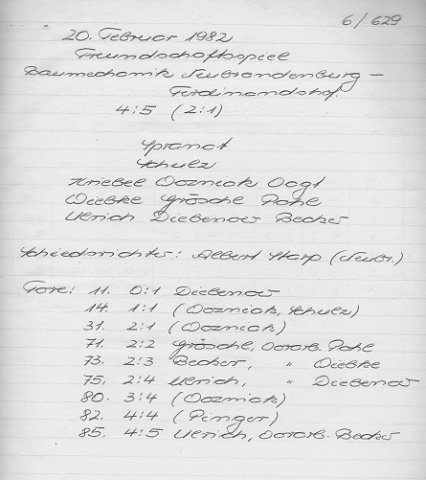 6/629
20. Februar 1982
Freundschaftsspiel
Baumechanik Neubrandenburg –
Ferdinandshof
4:5 (2:1)
Spranat
Schulz
Kriebel Wozniak Vogt
Wiebke Grösche Pohl
Ulrich Diebenow Becker
Schiedsrichter: Albert Harp (Neubr.)
Tore: 11. 0:1 Diebenow
14. 1:1 (Wozniak, Schulz)
31. 2:1 (Wozniak)
71. 2:2 Grösche, Vorarb. Pohl
73. 2:3 Becker, " Wiebke
75. 2:4 Ulrich, " Diebenow
80. 3:4 (Wozniak)
82. 4:4 (Penger)
85. 4:5 Ulrich, Vorarb. Becker